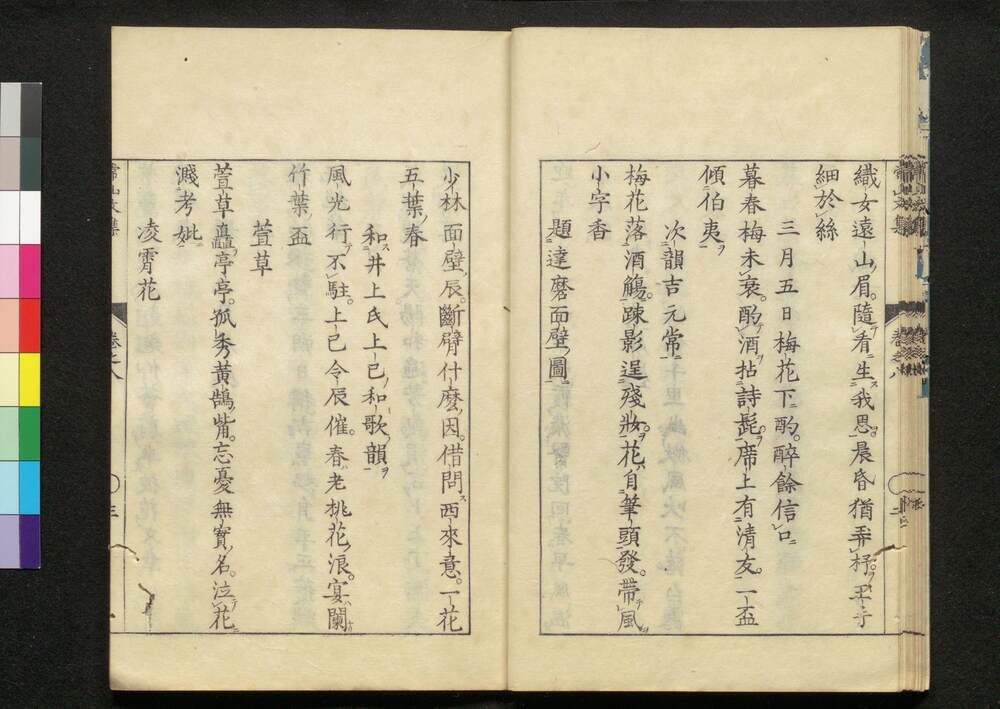 織女遠山眉。隨看生我思。晨昏猶弄杼。手
細於絲
三月五日梅花下酌。醉餘信口
暮春梅未衰。酌酒拈詩髭。席上有清友。一盃
傾伯夷
次韻吉元常
梅花落酒觴。疎影逞殘妝。花自筆頭發。帶風
小字香
題達磨面壁圖
少林面壁辰。斷臂什麼因。借問西來意。一花
五葉春
和井上氏上巳和歌韻
風光行不駐。上巳令辰催。春老桃花浪。宴闌
竹葉盃
萱草
萱草矗亭亭。孤秀黃鵠觜。忘憂無實名。泣花
濺考妣
凌霄花
常山文集
卷之八
三